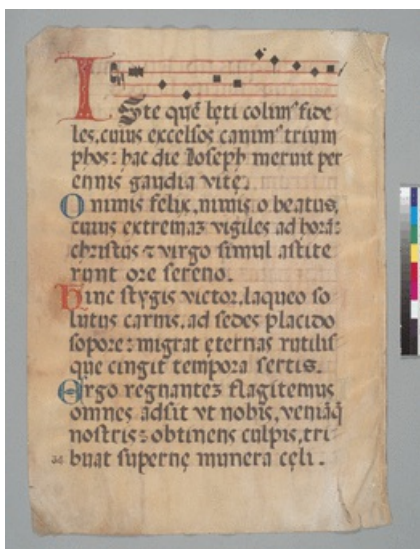 Iste quē lęti colim᷒ fide
les, cuius excelsos canim᷒ trium
phos: hac die Ioseph meruit per
ennis gaudia vitę.
O nimis felix, nimis o beatus,
cuius extremaʒ vigiles ad horā:
christus ⁊ virgo simul astite
runt ore sereno.
Hinc stygis victor, laqueo so
lutus carnis, ad sedes placido
sopore: migrat ęternas rutilis
que cingit tempora sertis.
Ergo regnanteʒ flagitemus
omnes adsit vt nobis, veniāq̃
nostris: obtinens culpis, tri
buat supernę munera cęli.